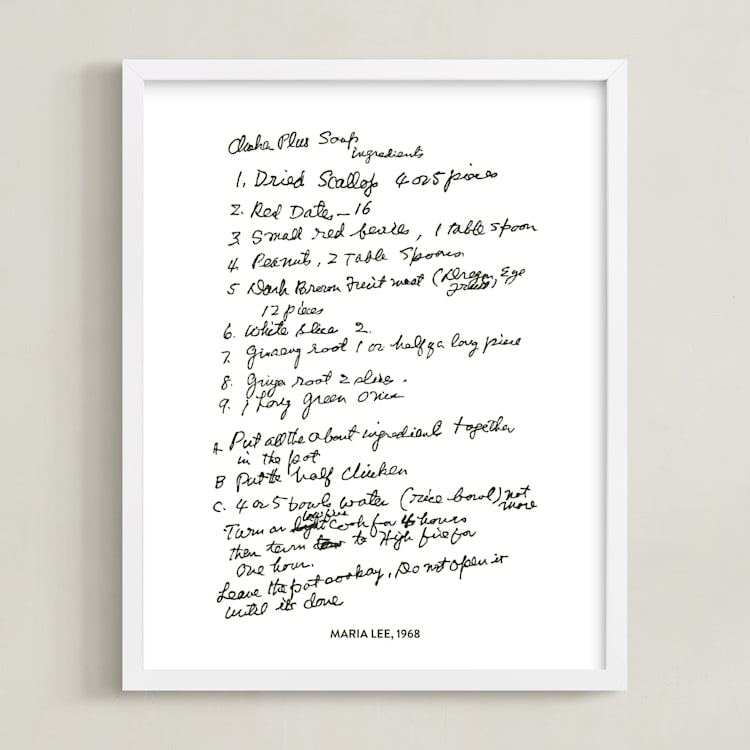 Plus Soup
ingredients
1. Dried Scallop 4 or 5 pieces
2. Red Dates - 16
3 Small red , 1 table spoon
4. Peanuts, 2 Table Spoons
5 Dark Brown Fruit meat (Dragon, Eye
fruit)
12 pieces
6. White 2.
7. Ginseng root 1 or half of a long piece
8. root 2 slice.
9. 1 Long green onion
A Put all the about ingredients together
in the pot
B Put the half chicken
C. 4 or 5 bowls water (rice bowl) not
more
low fire
Turn on light Cook for 4 hours
then turn to High fire for
one hour.
Leave the pot , Do not open it
until it's done
MARIA LEE, 1968